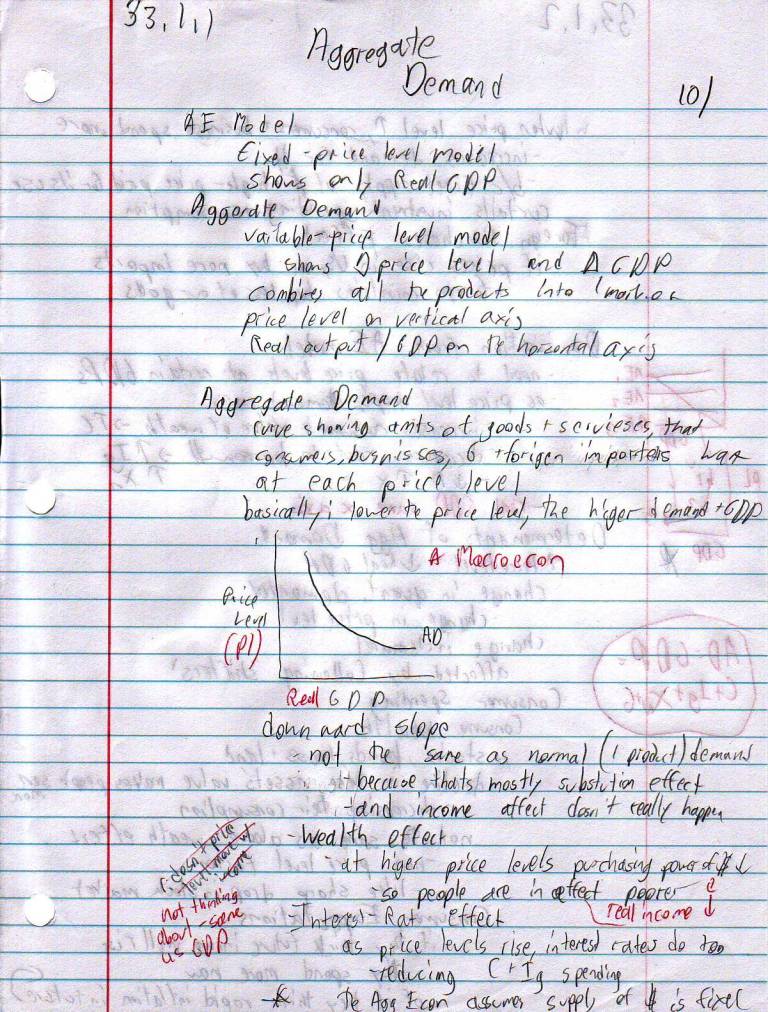 33.1.1)
Aggregate
Demand
101
AE Model
Fixed-price level model
shows only Real GDP
Aggorate Demand
vailable-price level model
shows Δ price level and Δ GDP
combines all the products into 1
price level on vertical axis
Real output / GDP on the horzontal axis
Aggregate Demand
curve showing amts of goods + servieses, that
consumers, busnisses, G + forigen importers
at each price level
basically, lower the price level, the higer demand + GDP
A Macroecon
Price
Level
(Pl)
AD
Real GDP
downward slope
- not the same as normal (1 product) demand
- because thats mostly substution effect
- and income affect doesn't really happen
- Wealth effect
- at higer price levels purchasing power of $ ↓
- so people are in effect poorer
real income ↓
not thinking
about - same
as GDP
- Interest-Rate effect
as price levels rise, interest rates do too
- reducing C + Ig spending
* the Agg Econ assumes supply of $ is fixed